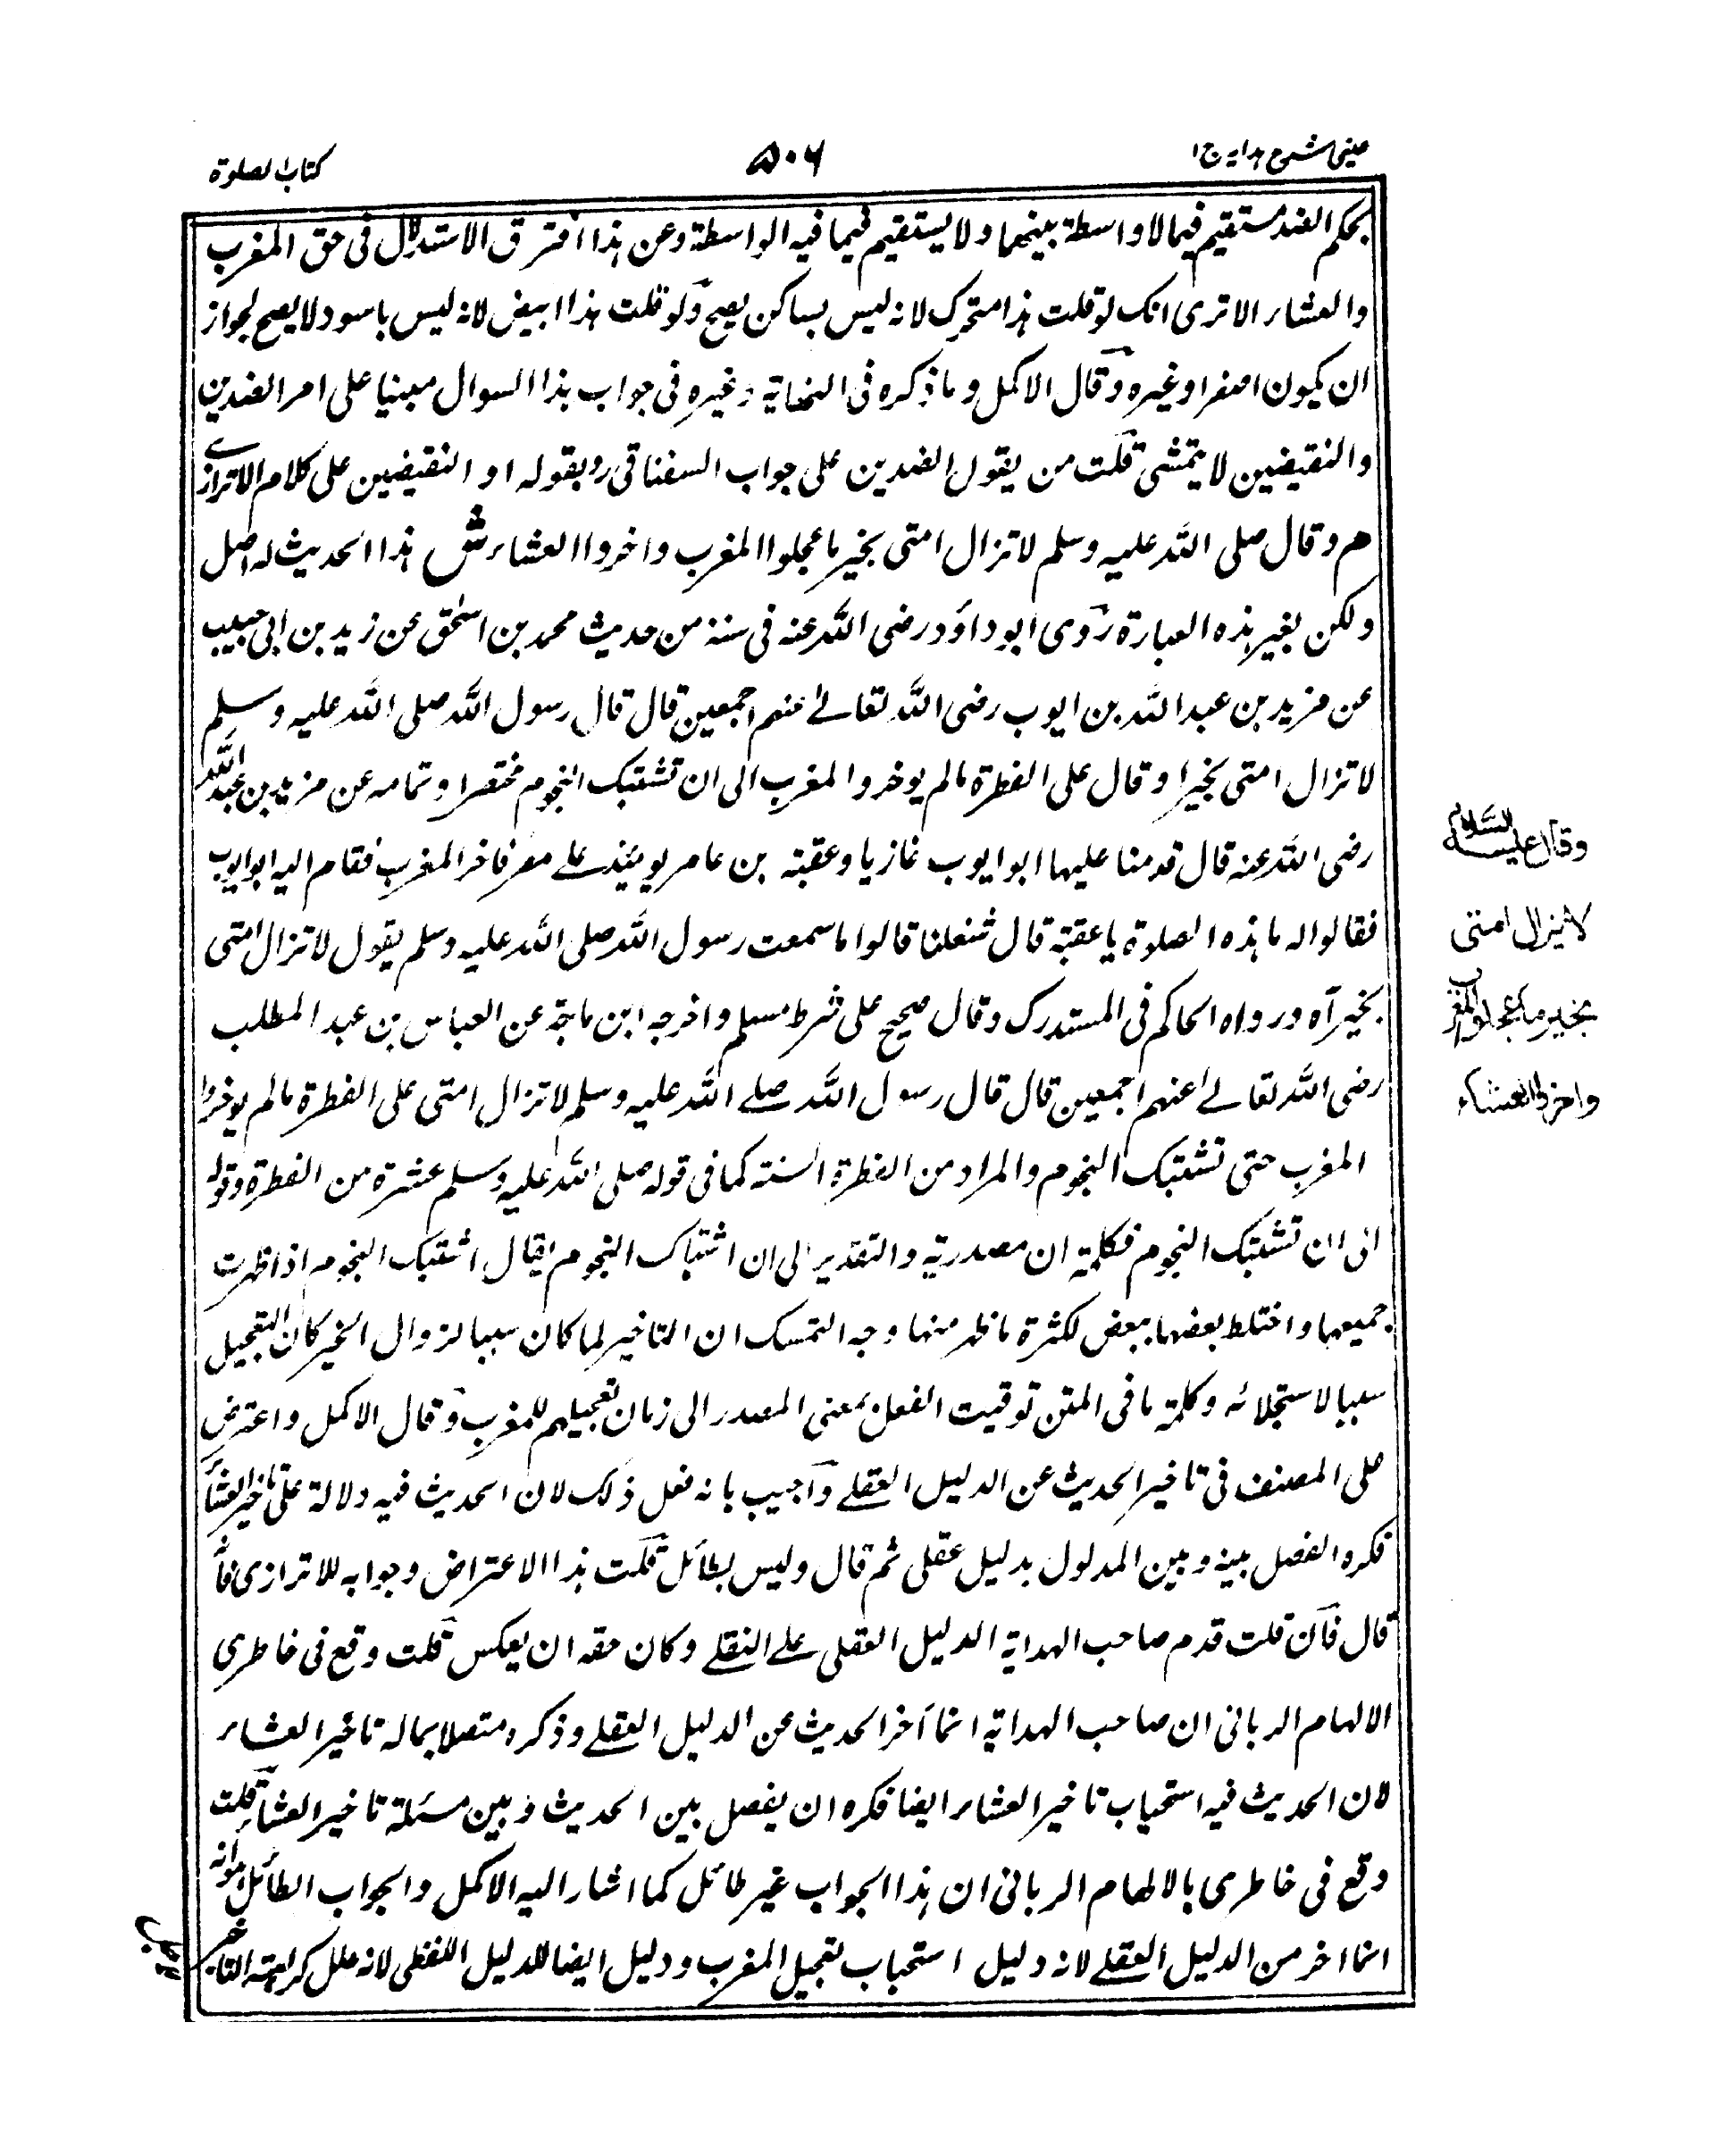 عینی شرح ہدایہ ج ١
٥٠٦
کتاب الصلوة
بحکم الضد مستقیم فیما لا واسطة بینهما ولا یستقیم فیما فیه الواسطة وعن هذا افترق الاستدلال فی حق المغرب
والعشاء الا تری انک لو قلت هذا متحرک لانه لیس بساکن یصح ولو قلت هذا ابیض لانه لیس باسود لا یصح لجواز
ان یکون اصفر او غیره وقال الاکمل وما ذکره فی النهایة وغیره فی جواب هذا السوال مبنیا علی امر الضدین
والنقیضین لا یتمشی قلت من یقول الضدین علی جواب السغناقی رو بقوله او النقیضین علی کلام الاترازی
هم وقال صلی الله علیه وسلم لا تزال امتی بخیر ما عجلوا المغرب واخروا العشاء ش هذا الحدیث له اصل
ولکن بغیر هذه العبارة روی ابو داؤد رضی الله عنه فی سننه من حدیث محمد بن اسحٰق عن زید بن ابی حبیب
عن مزید بن عبد الله بن ایوب رضی الله تعالےٰ عنهم اجمعین قال قال رسول الله صلی الله علیه وسلم
لا تزال امتی بخیر او قال علی الفطرة مالم یوخروا المغرب الی ان تشتبک النجوم مختصرا وتمامه عن مزید بن عبد الله
رضی الله عنه قال قدمنا علیها ابو ایوب غازیا وعقبة بن عامر یومئذ علے مصر فاخر المغرب فقام الیه ابو ایوب
فقالوا له ما هذه الصلوة یا عقبة قال شغلنا قالوا ما سمعت رسول الله صلی الله علیه وسلم یقول لا تزال امتی
بخیر آه ورواه الحاکم فی المستدرک وقال صحیح علی شرط مسلم واخرجه ابن ماجة عن العباس بن عبد المطلب
رضی الله تعالےٰ عنهم اجمعین قال قال رسول الله صلے الله علیه وسلم لا تزال امتی علی الفطرة مالم یوخروا
المغرب حتی تشتبک النجوم والمراد من الفطرة السنة کما فی قوله صلی الله علیه وسلم عشرة من الفطرة وقوله
الی ان تشتبک النجوم فکلمة ان مصدریة والتقدیر الی ان اشتباک النجوم یقال اشتبک النجوم اذا ظهرت
جمیعها واختلط بعضها ببعض لکثرة ما ظهر منها وجه التمسک ان التاخیر لما کان سببا لزوال الخیر کان التعجیل
سببا لاستجلائه وکلمة ما فی المتن توقیت الفعل بمعنی المصدر الی زمان تعجیلهم للمغرب وقال الاکمل واعترض
علی المصنف فی تاخیر الحدیث عن الدلیل العقلے وآجیب بانه فعل ذلک لان الحدیث فیه دلالة علی تاخیر العشاء
فکره الفصل بینه وبین المدلول بدلیل عقلی ثم قال ولیس بطائل قلت هذا الاعتراض وجوابه للاترازی فانه
قال فان قلت قدم صاحب الهدایة الدلیل العقلی علے النقلے وکان حقه ان یعکس قلت وقع فی خاطری
الالهام الربانی ان صاحب الهدایة انما آخر الحدیث عن الدلیل العقلے وذکره متصلا بماله تاخیر العشاء
لان الحدیث فیه استحباب تاخیر العشاء ایضا فکره ان یفصل بین الحدیث وبین مسئلة تاخیر العشاء قلت
وقع فی خاطری بالالهام الربانی ان هذا الجواب غیر طائل کما اشار الیه الاکمل والجواب الطائل هو انه
انما اخر من الدلیل العقلے لانه دلیل استحباب تعجیل المغرب ودلیل ایضا للدلیل اللفظی لانه علل کراهته التاخیر
وقال علیه السلام
لا یزال امتی
بخیر ما عجلوا المغرب
واخروا العشاء